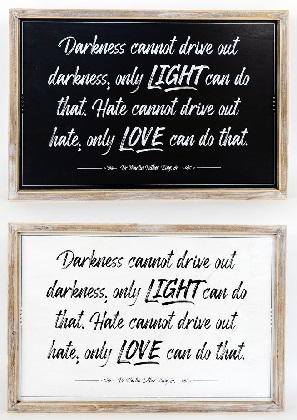 Darkness cannot drive out
darkness, only LIGHT can do
that. Hate cannot drive out
hate, only LOVE can do that.
Dr Martin Luther King, Jr.
Darkness cannot drive out
darkness, only LIGHT can do
that. Hate cannot drive out
hate, only LOVE can do that.
Dr Martin Luther King, Jr.